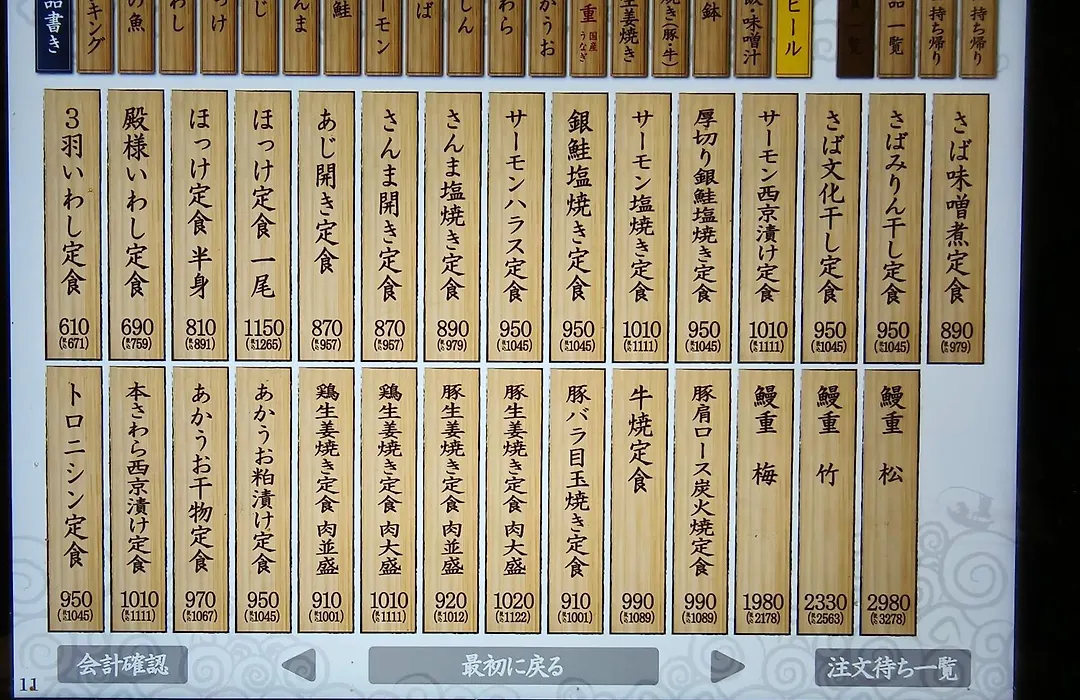 品書き
キング
の魚
わし
っけ
じ
んま
鮭
ーモン
ば
しん
わら
かうお
重 国産うなぎ
生姜焼き
焼き(豚・牛)
鉢
・味噌汁
ビール
一覧
品一覧
持ち帰り
持ち帰り
3羽いわし定食
610
(税込671)
殿様いわし定食
690
(税込759)
ほっけ定食 半身
810
(税込891)
ほっけ定食 一尾
1150
(税込1265)
あじ開き定食
870
(税込957)
さんま開き定食
870
(税込957)
さんま塩焼き定食
890
(税込979)
サーモンハラス定食
950
(税込1045)
銀鮭塩焼き定食
950
(税込1045)
サーモン塩焼き定食
1010
(税込1111)
厚切り銀鮭塩焼き定食
950
(税込1045)
サーモン西京漬け定食
1010
(税込1111)
さば文化干し定食
950
(税込1045)
さばみりん干し定食
950
(税込1045)
さば味噌煮定食
890
(税込979)
トロニシン定食
950
(税込1045)
本さわら西京漬け定食
1010
(税込1111)
あかうお干物定食
970
(税込1067)
あかうお粕漬け定食
950
(税込1045)
鶏生姜焼き定食 肉並盛
910
(税込1001)
鶏生姜焼き定食 肉大盛
1010
(税込1111)
豚生姜焼き定食 肉並盛
920
(税込1012)
豚生姜焼き定食 肉大盛
1020
(税込1122)
豚バラ目玉焼き定食
910
(税込1001)
牛焼定食
990
(税込1089)
豚肩ロース炭火焼定食
990
(税込1089)
鰻重 梅
1980
(税込2178)
鰻重 竹
2330
(税込2563)
鰻重 松
2980
(税込3278)
会計確認
最初に戻る
注文待ち一覧
11